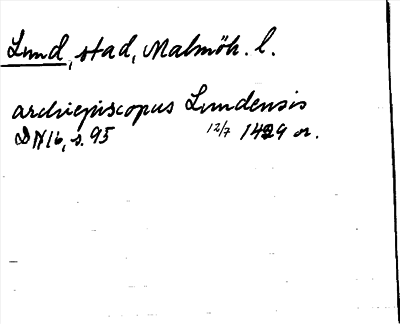 Lund, stad, Malmöh. l.
archiepiscopus Lundensis
DN 16, s. 95 12/7 1429 or.